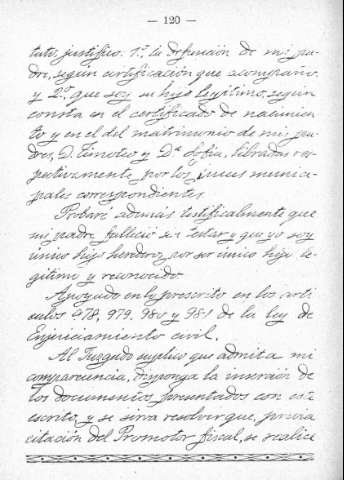 — 120 —
tute, justifico: 1.º la defunción de mi pa-
dre, según certificación que acompaño,
y 2.º que soy su hijo legítimo, según
consta en el certificado de nacimien-
to y en el del matrimonio de mis pa-
dres, D. Timoteo y D.ª Sofía, libradas res-
pectivamente por los jueces munici-
pales correspondientes.
Probaré además testificalmente que
mi padre falleció sin testar y que yo soy
único hijo heredero, por ser único hijo le-
gítimo y reconocido.
Apoyado en lo prescrito en los artí-
culos 978, 979, 980 y 981 de la ley de
Enjuiciamiento civil.
Al Juzgado suplico que admita mi
comparecencia, disponga la inserción de
los documentos presentados con este
escrito, y se sirva resolver que, previa
citación del Promotor fiscal, se realice